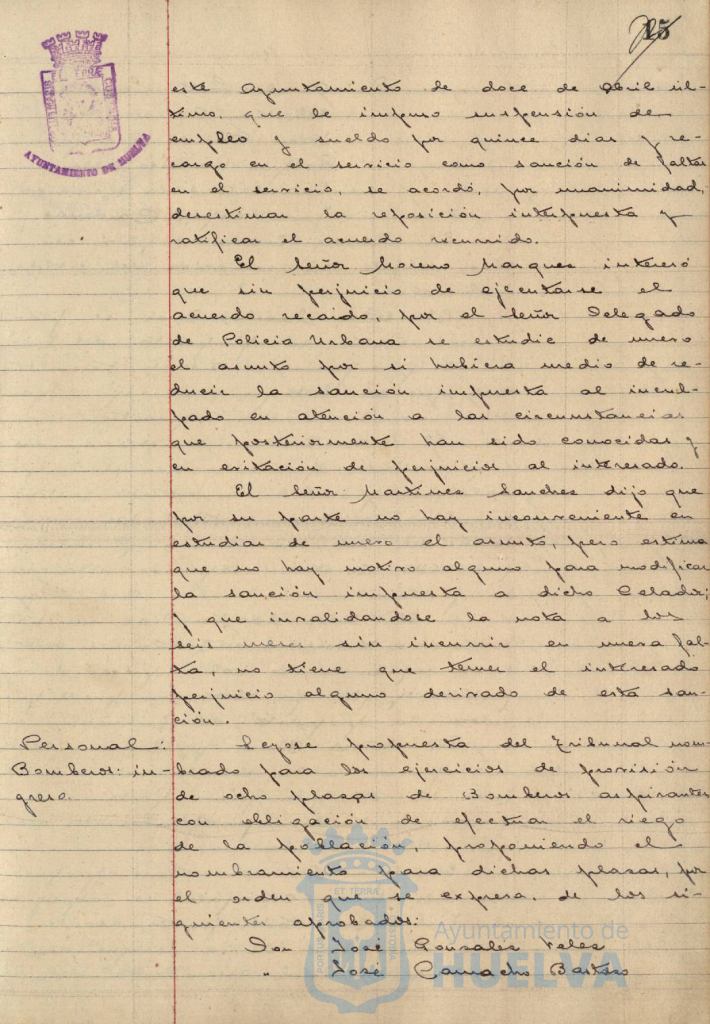 25
AYUNTAMIENTO DE HUELVA
este Ayuntamiento de doce de Abril úl-
timo, que le impuso suspensión de
empleo y sueldo por quince dias y re-
cargo en el servicio como sanción de faltas
en el servicio, se acordó, por unanimidad,
desestimar la reposición interpuesta y
ratificar el acuerdo recurrido.
El Señor Moreno Marquez interesó
que sin perjuicio de ejecutarse el
acuerdo recaido, por el Señor Delegado
de Policia Urbana se estudie de nuevo
el asunto por si hubiera medio de re-
ducir la sanción impuesta al incul-
pado en atención a las circunstancias
que posteriormente han sido conocidas y
en evitación de perjuicios al interesado.
El Señor Martinez Sanchez dijo que
por su parte no hay inconveniente en
estudiar de nuevo el asunto, pero estima
que no hay motivo alguno para modificar
la sanción impuesta a dicho Celador;
y que invalidandose la nota a los
seis meses sin incurrir en nueva fal-
ta, no tiene que temer el interesado
perjuicio alguno derivado de esta san-
ción.
Personal:
Bomberos: in-
greso.
Leyose propuesta del Tribunal nom-
brado para los ejercicios de provisión
de ocho plazas de Bomberos aspirantes
con obligación de efectuar el riego
de la población, proponiendo el
nombramiento para dichas plazas, por
el orden que se expresa, de los si-
guientes aprobados:
Don José Gonzalez Velez
" José Camacho Barroso
Ayuntamiento de
HUELVA